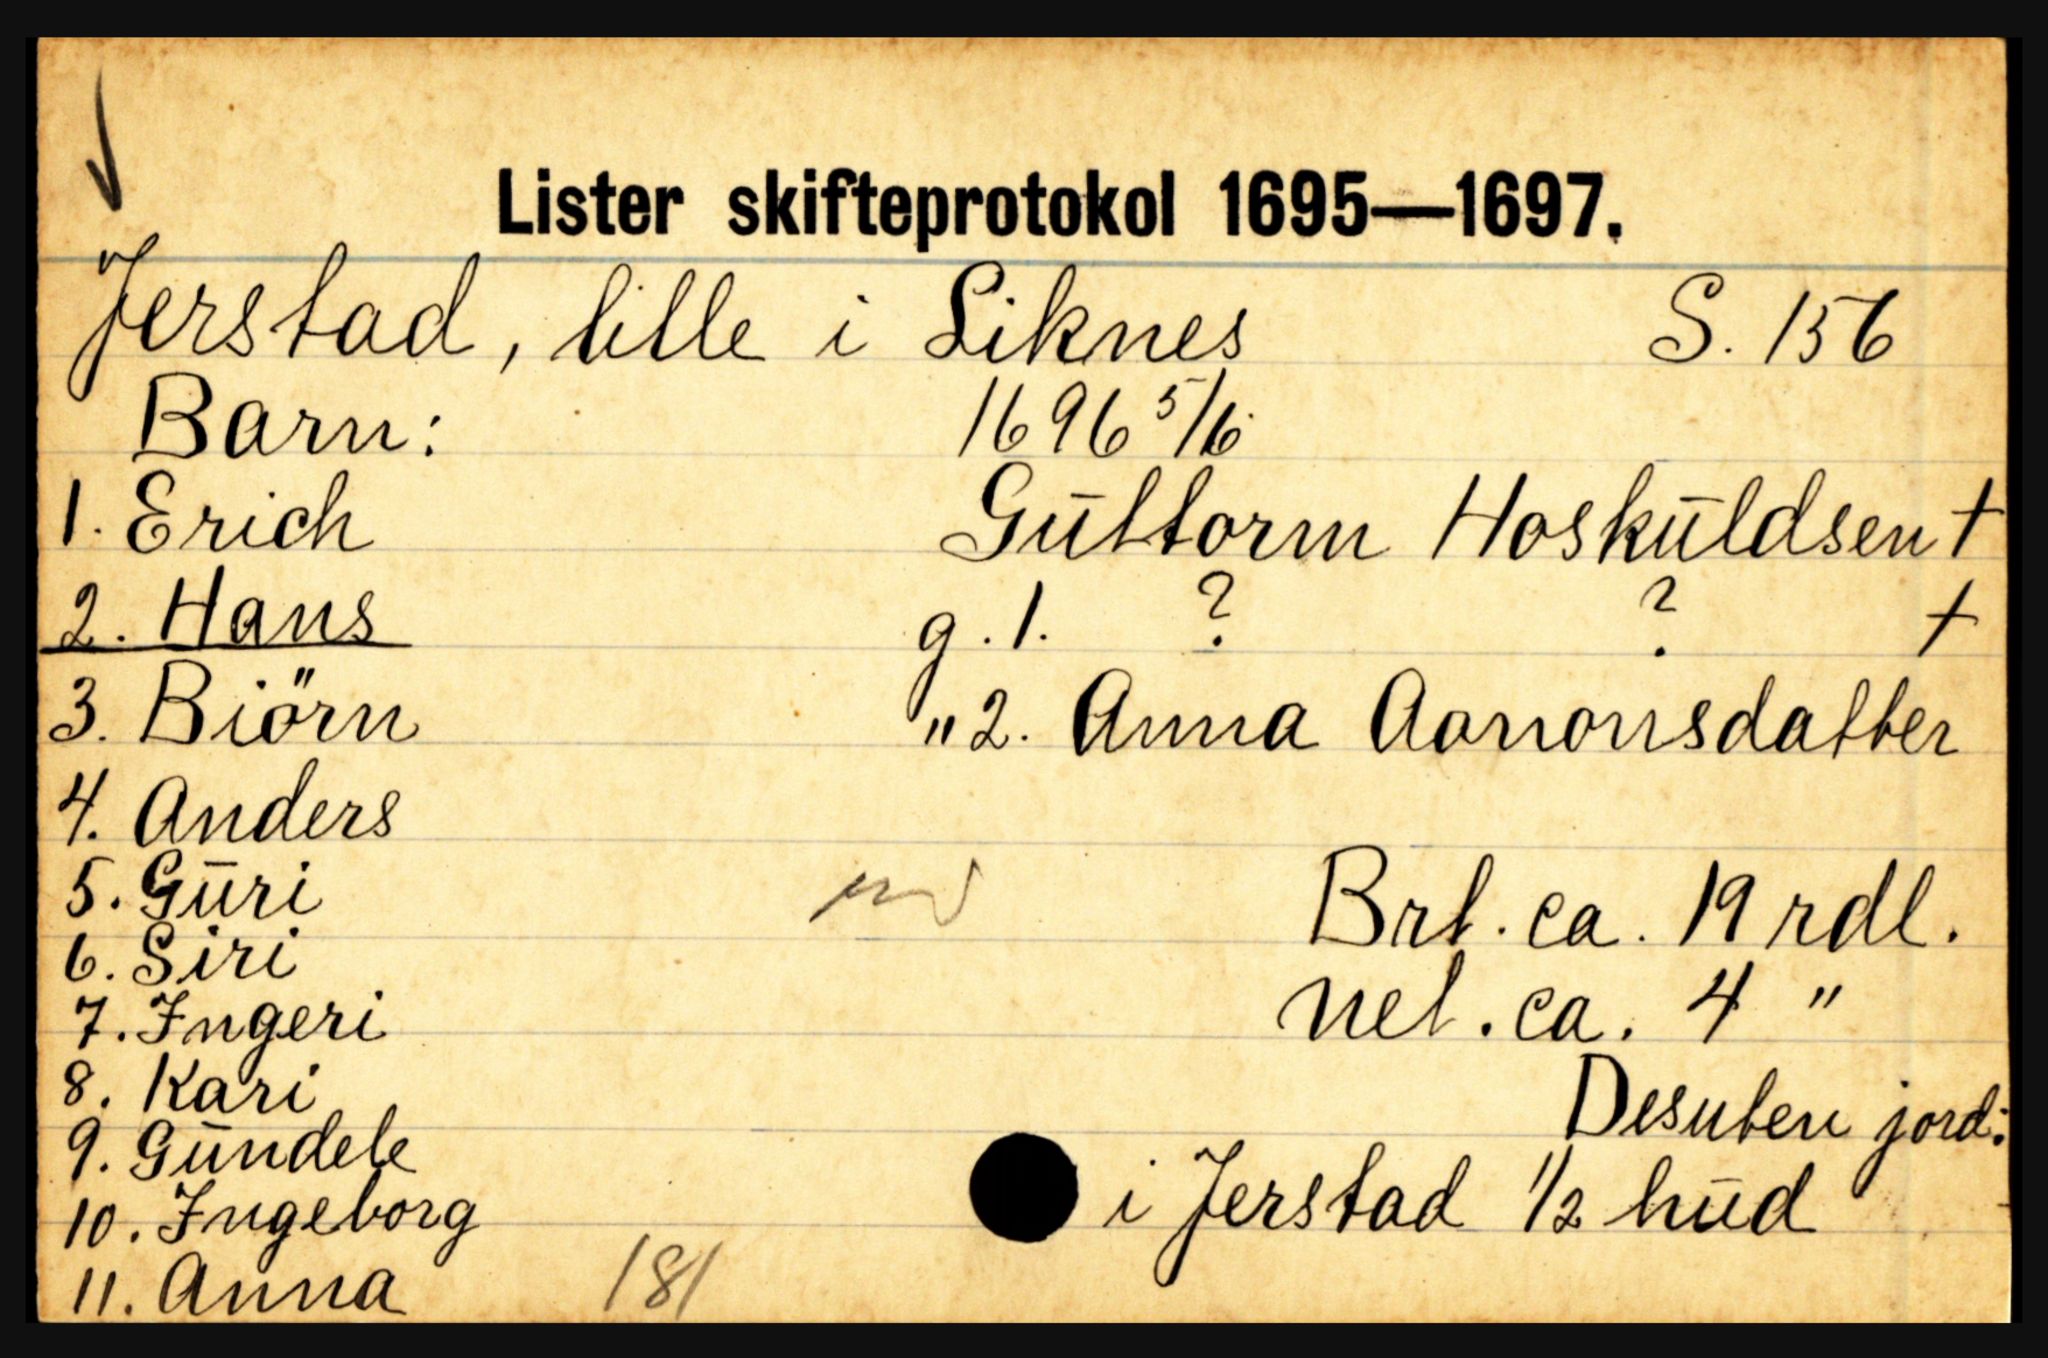 Lister skifteprotokol 1695—1697.
Jerstad, lille i Liknes S. 156
Barn: 1696 5/6
1. Erich Gūttorm Hoskūldsen †
2. Hans g. 1. ? ? †
3. Biörn " 2. Anna Aanonsdatter
4. Anders
5. Gūri Brt. ca. 19 rdl.
6. Siri
7. Ingeri Net. ca. 4 "
8. Kari Desuten jord:
9. Gūndele
10. Ingeborg i Jerstad 1/2 hūd
11. Anna 181